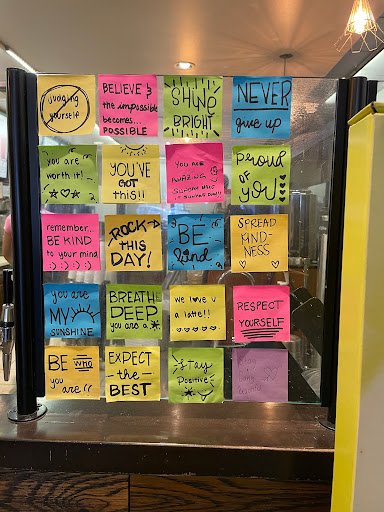 judging
yourself
BELIEVE &
the impossible
becomes...
POSSIBLE
SHINE
BRIGHT
NEVER
give up
you are
worth it!
YOU'VE
GOT
THIS!!
YOU ARE
AMAZING
proud
of
YOU
remember...
BE KIND
to your mind
:) :) :) :)
ROCK
THIS
DAY!
BE
kind
SPREAD
KIND-
NESS
you are
MY
SUNSHINE
BREATHE
DEEP
you are a
we love u
a latte!!
RESPECT
YOURSELF
BE WHO
you are!!
EXPECT
-the-
BEST
Stay
Positive